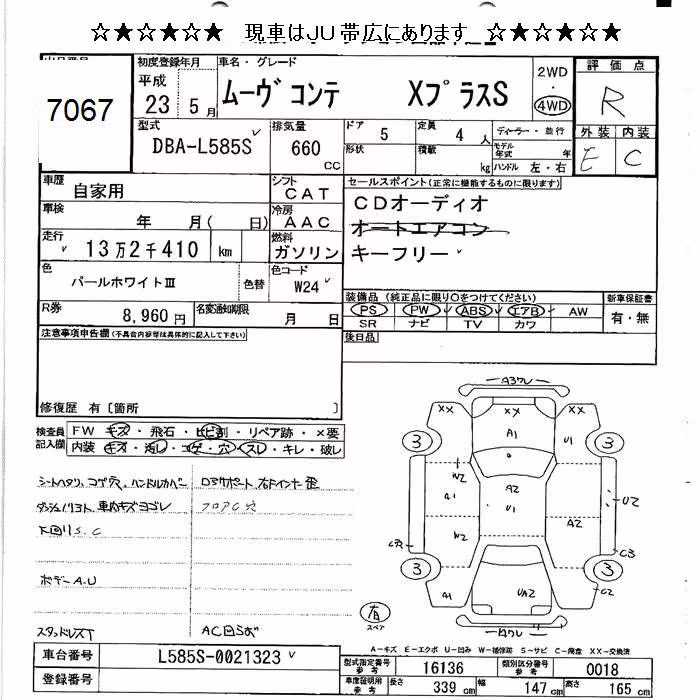 ☆★☆★☆★ 現車はJU帯広にあります ☆★☆★☆★
7067
初度登録年月
平成 23 5月
車名・グレード
ムーヴ コンテ XプラスS
2WD
4WD
評価点
R
外装 内装
E C
型式
DBA-L585S
排気量
660 CC
ドア 5
形状
定員 4 人
積載 kg
ディーラー・並行
モデル年式 年
ハンドル 左・右
車歴
自家用
シフト
CAT
車検
年 月( 日)
冷房
AAC
走行
13万2千410 km
燃料
ガソリン
色
パールホワイトⅢ
色替
色コード
W24
R券
8,960円
名変通知期限
月 日
セールスポイント(正常に機能するものに限ります)
CDオーディオ
オートエアコン
キーフリー
装備品(純正品に限り○をつけてください)
PS PW ABS エアB AW
SR ナビ TV カワ
新車保証書
有・無
後日品
注意事項申告欄(不具合内容等は具体的に記入して下さい)
修復歴 有〔箇所 〕
検査員記入欄
FW キズ・飛石・ヒビ割・リペア跡・×要
内装 キズ・汚レ・コゲ・穴・スレ・キレ・破レ
シートヘタリ、コゲ穴、ハンドルカバー
車内キズヨゴレ
下回りS.C
ボデーA.U
スタッドレスT
フロアC穴
A3ワレ
XX XX XX
A1 U1
3 3
W2 A2 U2
a1 U1
W2 A2
C3
3 3
A1 UA2 C2
有
スペア
A-キズ E-エクボ U-凹み W-補修跡 S-サビ C-腐食 XX-交換済
車台番号 L585S-0021323
登録番号
型式指定番号 参考 16136
類別区分番号 参考 0018
車庫証明用 参考 長さ 339 cm 幅 147 cm 高さ 165 cm